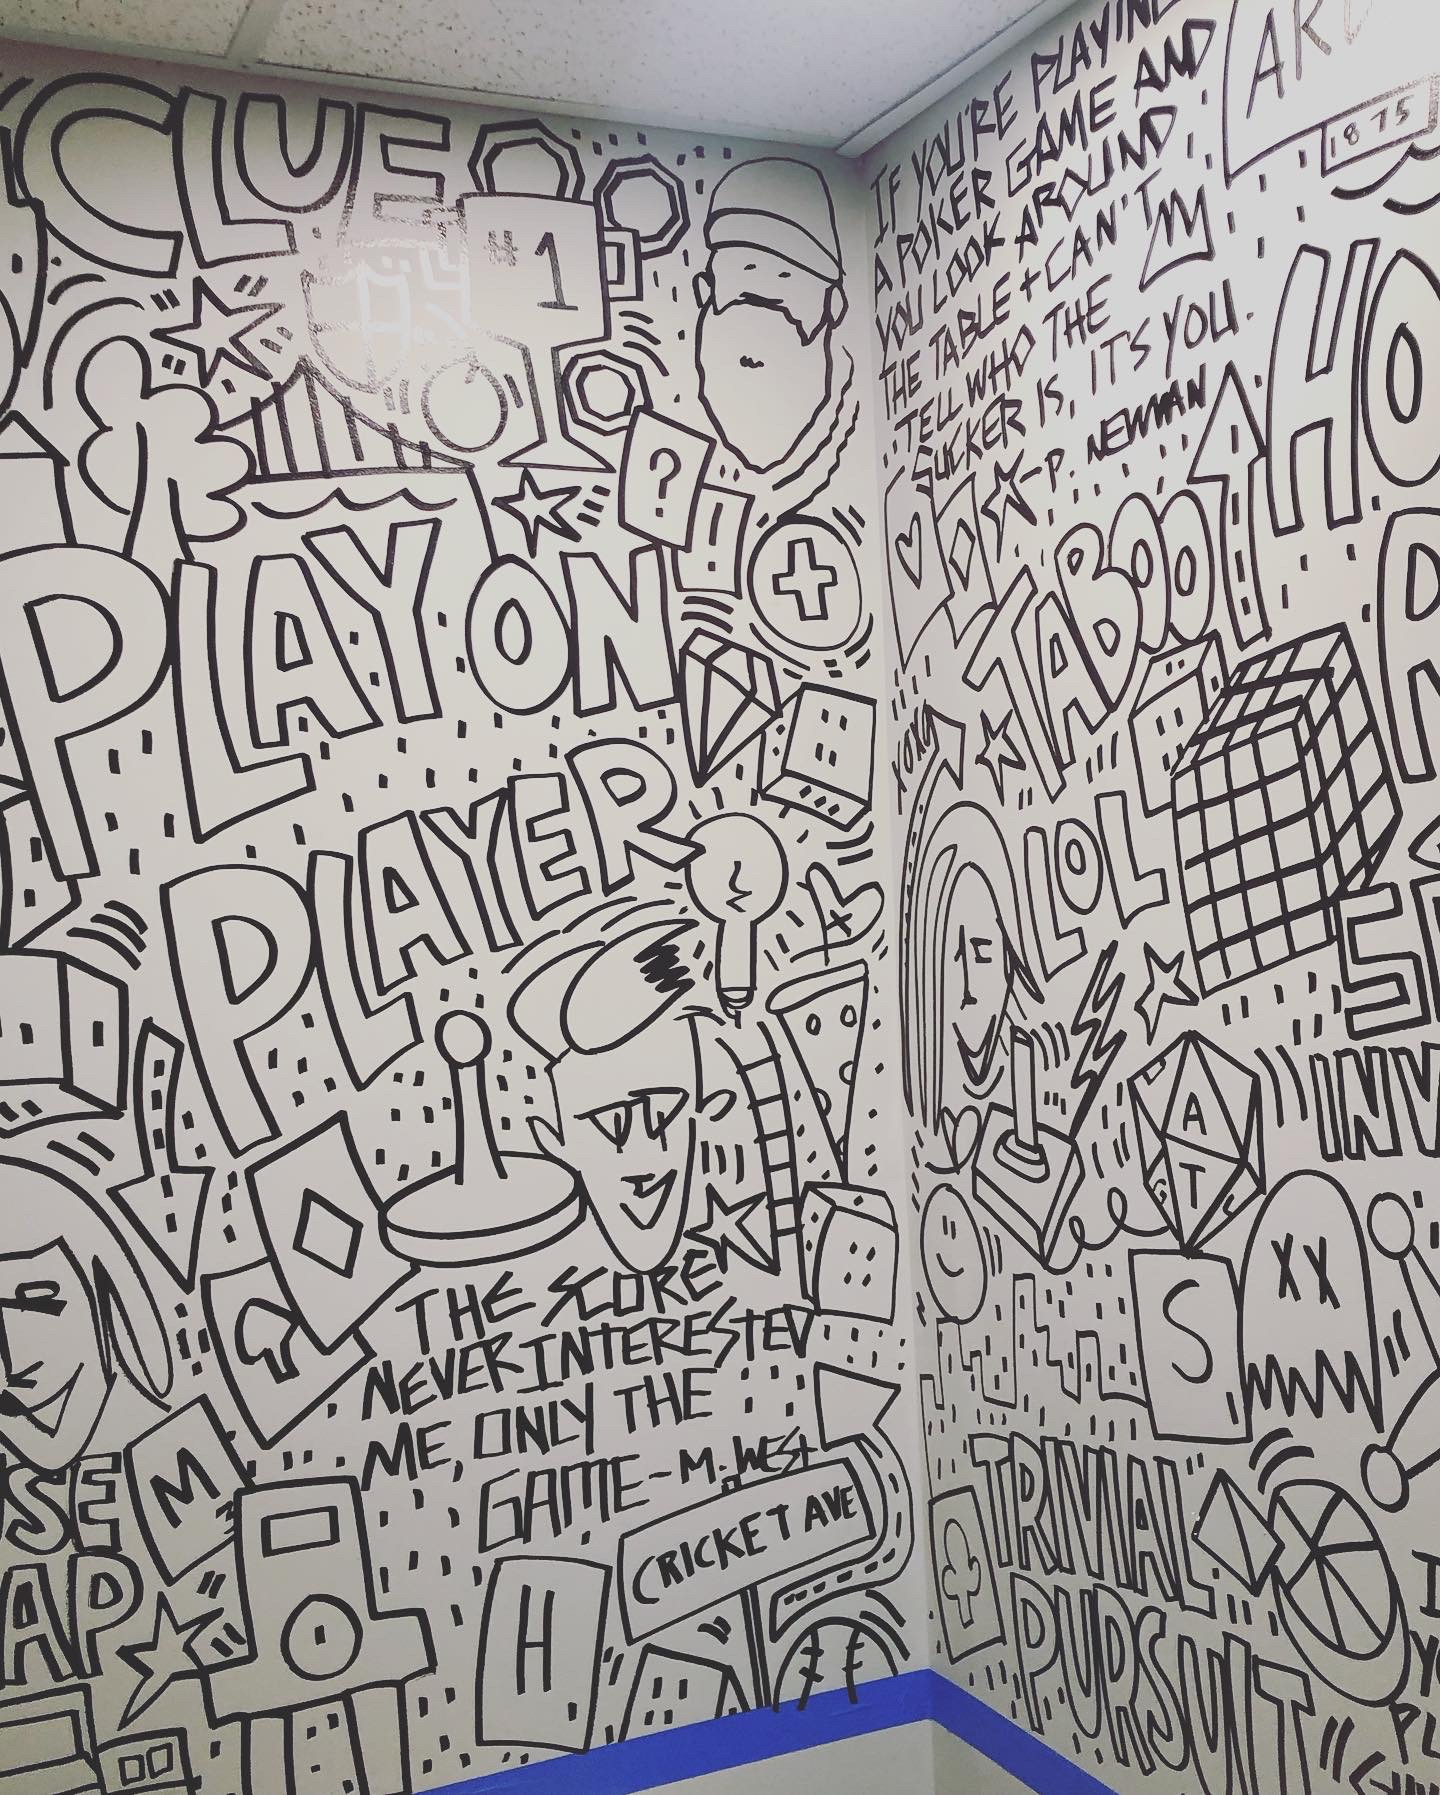 CLUE
#1
PLAY ON
PLAYER
PLAYER
?
THE SCORE
NEVER INTERESTED
ME, ONLY THE
GAME - M. WEST
CRICKET AVE
H
M
SE
AP
IF YOU'RE PLAYING
A POKER GAME AND
YOU LOOK AROUND
THE TABLE + CAN'T
TELL WHO THE
SUCKER IS, IT'S YOU.
- P. NEWMAN
1875
HO
TABOO
XOXO
LOL
INV
A
T
S
XX
TRIVIAL
PURSUIT